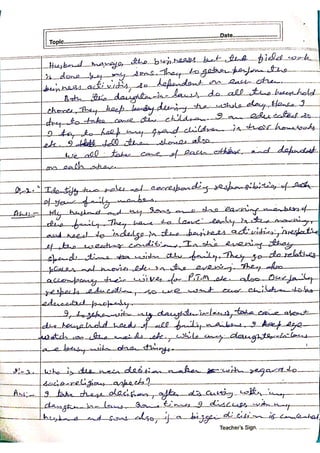 Date
Topic
Husband manage the business but the field work
is done by my sons. They together perform the
business activities, so dependent on each other.
Both the daughter in laws do all the household
chores. They keep busy during the whole day. Hence I
try to take care the children. I am educated so
I try to help my grand children in their homeworks
etc. I tell them stories also.
We all take care of each other, and dependent
on each other.
Q-2. Identify two roles and corresponding responsibilities of each
of your family members.
Ans:- My husband and my sons are the earning members of
the family. They have to leave early in the morning,
and need to indulge in the business activities, irrespective
of the weather condition. In the evening they
spend time with the family. They go to relatives
places and movie etc. in the evening. They also
accompany their wives for P.T.M etc. also. Our family
respects education, so we want our children to be
educated properly.
I, together with my daughter in laws, take care about
the household needs of all family members. I keep eye
watch on the maids etc. while my daughter in laws
are busy with other things.
Q-3. Who is the main decision maker with regard to
socio-religious aspects?
Ans:- I take these decision, after discussing with my
daughter in laws. Some times I discuss with my
husband and sons also, if a bigger decision is
Teacher's Sign